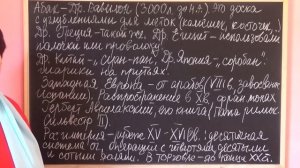 Абак - Др. Вавилон (3000л до н.э.) это доска
с углублениями для меток (камешек, косточек.)
Др. Греция - также. Др. Египет - использовали
палочки или проволоку.
Др. Китай - „суан-пан", Др. Япония - „соробан"
шарики на прутьях.
Западная Европа - от арабов (VIII в, завоевание
Испании). Распространение в X в, фран. монах
Герберт Аврилакский, его книга (папа римск.
Сильвестр II).
Рас-ширил - рубеж XV - XVI вв: десятичная
система 01, операции с тысячами, десятыми
и сотыми долями. В торговле - до конца XXв.